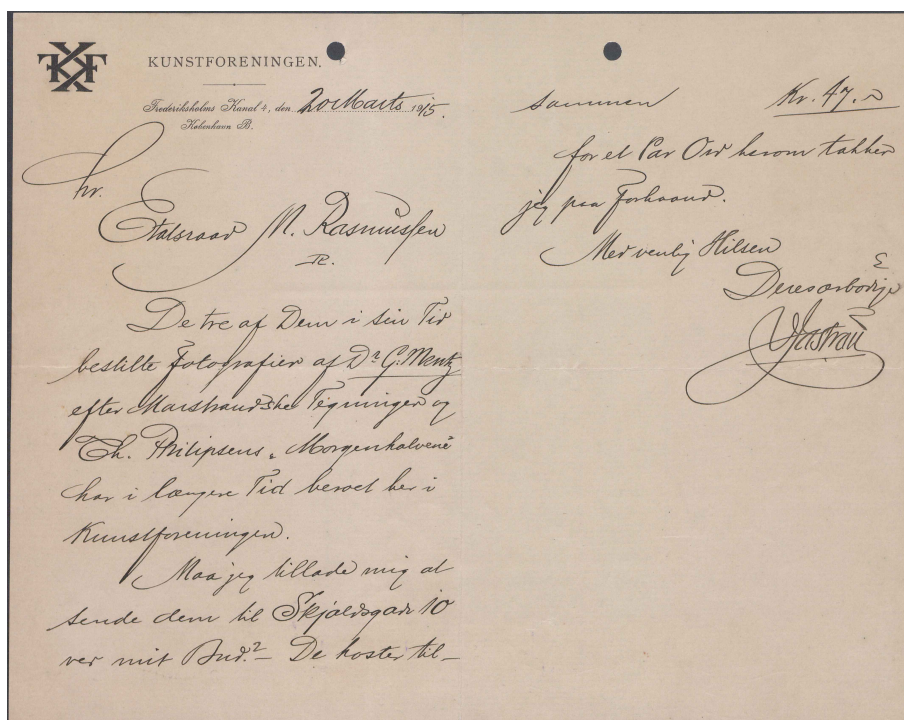 KUNSTFORENINGEN.
Frederiksholms Kanal 4, den 20 Marts 1915.
København B.
Hr.
Etatsraad M. Rasmussen
R.
De tre af Dem i sin Tid
bestilte Fotografier af Dr G. Mentz
efter Marstrandske Tegninger og
Th. Philipsens "Morgenhalvene"
har i længere Tid beroet her i
Kunstforeningen.
Maa jeg tillade mig at
sende dem til Skjoldsgade 10
ver mit Bud? – De koster til–
sammen Kr. 47.
for et Par Ord herom takker
jeg paa Forhaand.
Med venlig Hilsen
Deres ærbødige